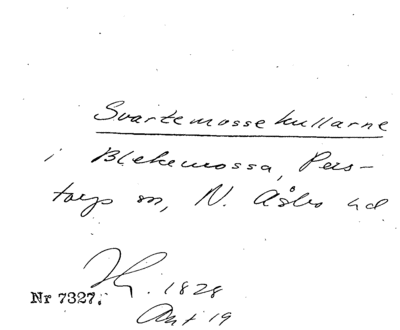 Svartemossekullarne
i Blekemossa, Pers-
torps sn, N. Åsbo hd
1828
Nr 7327.
Ant 19